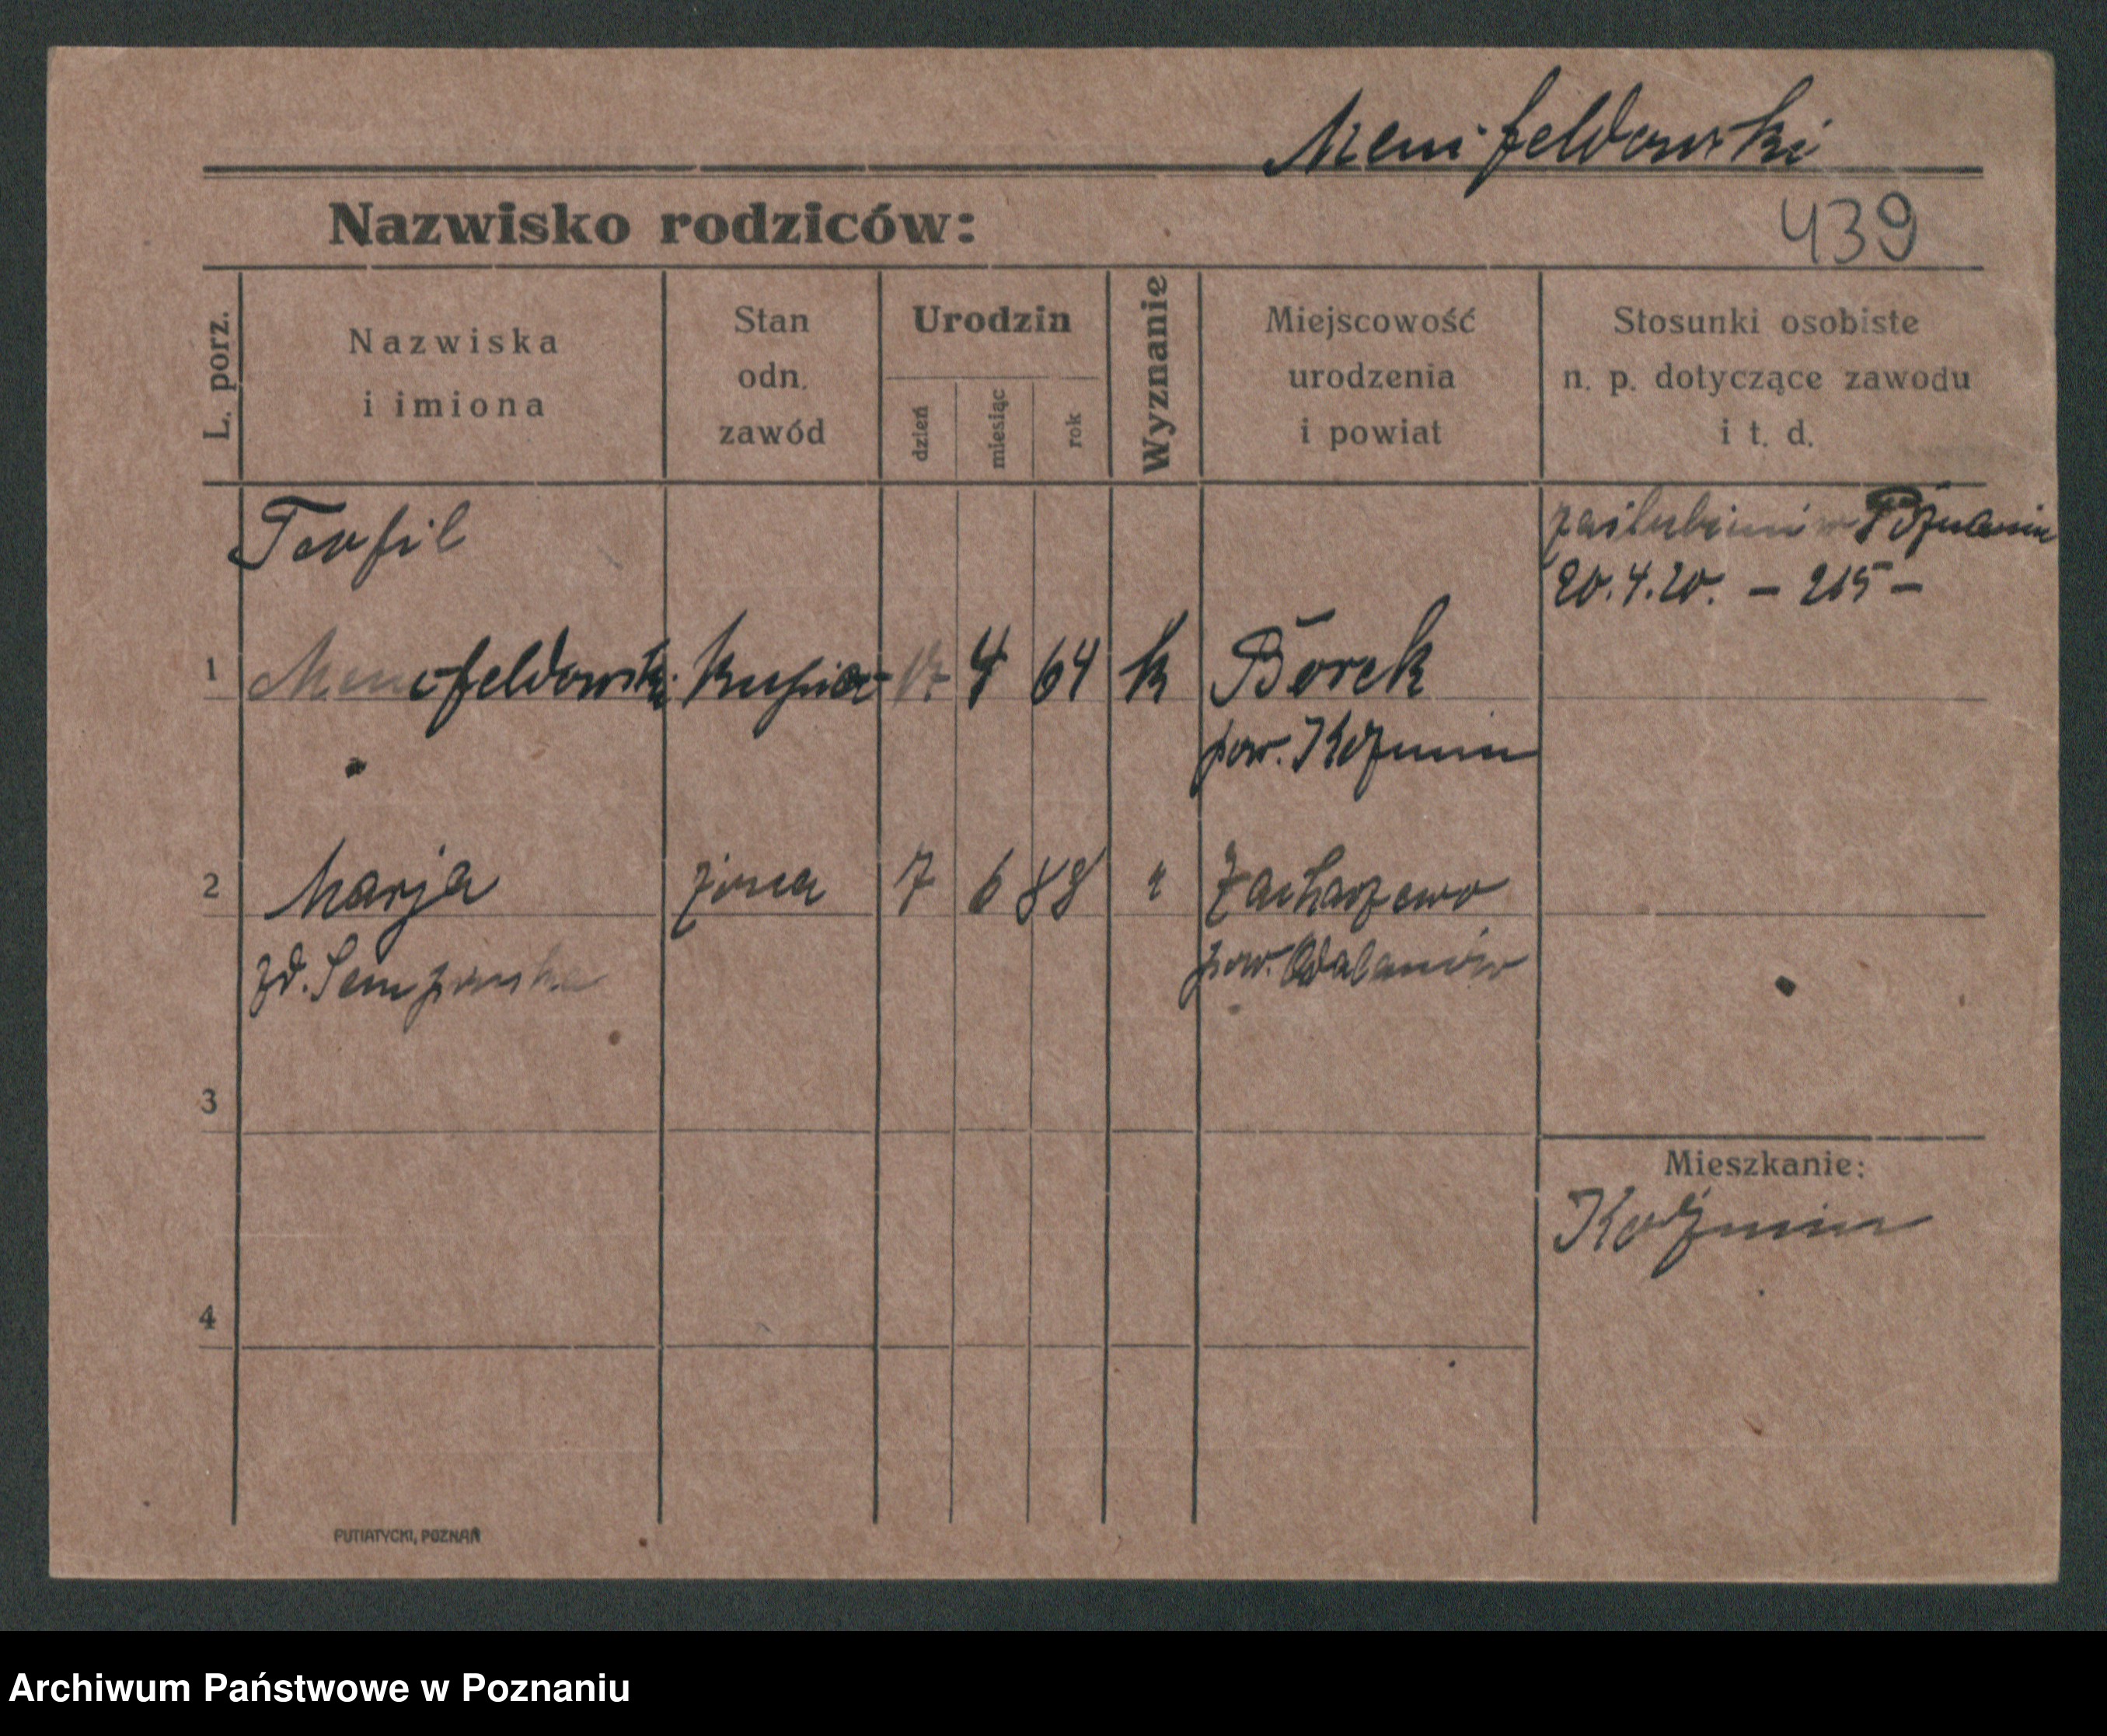 Menifeldowski
Nazwisko rodziców:
439
L. porz.
Nazwiska
i imiona
Stan
odn.
zawód
Urodzin
dzień
miesiąc
rok
Wyznanie
Miejscowość
urodzenia
i powiat
Stosunki osobiste
n. p. dotyczące zawodu
i t. d.
Teofil
zaślubieni w Poznaniu
20.4.20. – 215 –
1 Menifeldowski kupiec 4 64 k Borek
pow. Koźmin
2 Marja żona 7 6 88 " Zacharzewo
zd. pow. Odolanów
3
Mieszkanie:
Koźmin
4
PUTIATYCKI, POZNAŃ
Archiwum Państwowe w Poznaniu